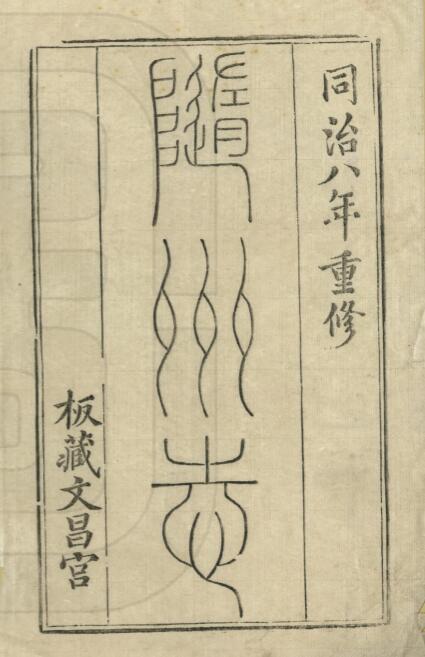 同治八年重修
隨州志
板藏文昌宮